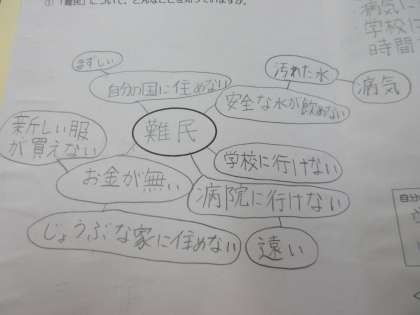 ① 「難民」について、どんなことを知っていますか。
病気に
学校に
時間
まずしい
自分の国に住めない
汚れた水
病気
安全な水が飲めない
難民
新しい服
が買えない
学校に行けない
お金が無い
病院に行けない
じょうぶな家に住めない
遠い
自分